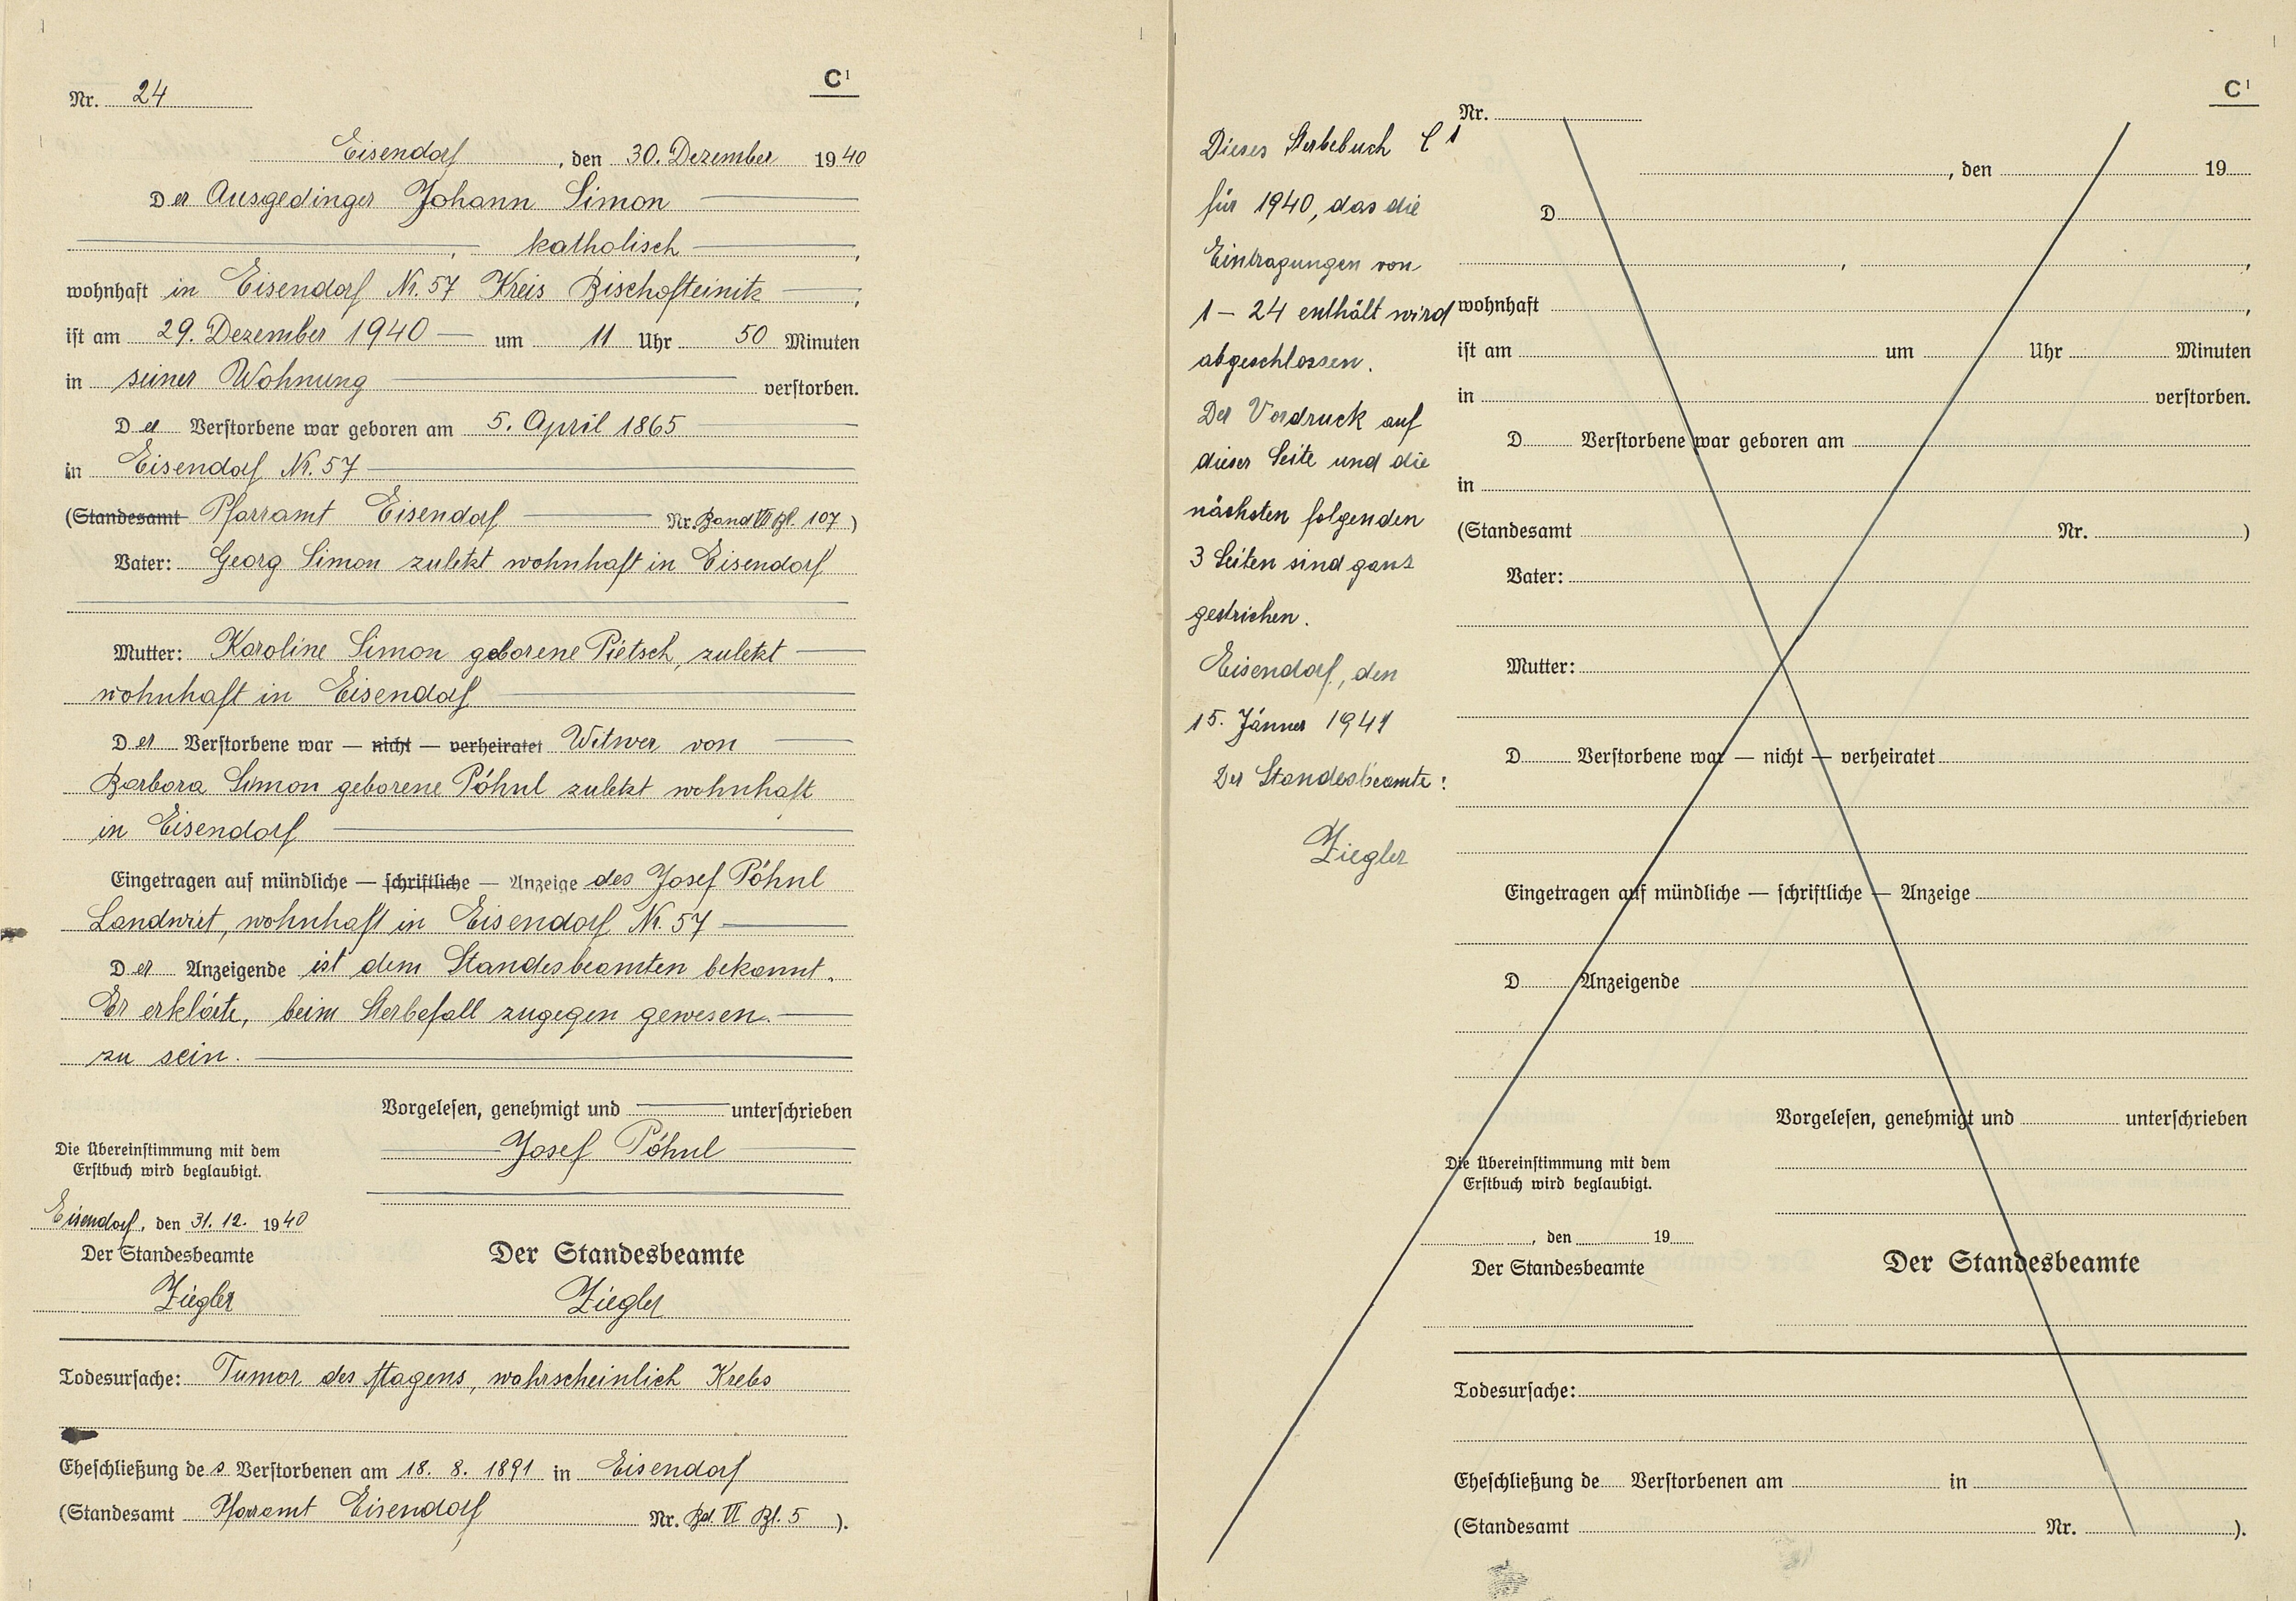 C1
Nr. 24
Eisendorf, den 30. Dezember 1940
Der Ausgedinger Johann Simon
, katholisch,
wohnhaft in Eisendorf Nr. 57 Kreis Bischofteinitz,
ist am 29. Dezember 1940 um 11 Uhr 50 Minuten
in seiner Wohnung verstorben.
Der Verstorbene war geboren am 5. April 1865
in Eisendorf Nr. 57
(Standesamt Pfarramt Eisendorf Nr. Band VII Bl. 107)
Vater: Georg Simon zuletzt wohnhaft in Eisendorf
Mutter: Karoline Simon geborene Pietsch, zuletzt
wohnhaft in Eisendorf
Der Verstorbene war — nicht — verheiratet Witwer von
Barbara Simon geborene Pöhnl zuletzt wohnhaft
in Eisendorf
Eingetragen auf mündliche — schriftliche — Anzeige des Josef Pöhnl
Landwirt, wohnhaft in Eisendorf Nr. 57
Der Anzeigende ist dem Standesbeamten bekannt.
Er erklärte, beim Sterbefall zugegen gewesen.
zu sein.
Vorgelesen, genehmigt und unterschrieben
Josef Pöhnl
Die Übereinstimmung mit dem
Erstbuch wird beglaubigt.
Eisendorf, den 31. 12. 1940
Der Standesbeamte
Ziegler
Der Standesbeamte
Ziegler
Todesursache: Tumor des Magens, wahrscheinlich Krebs
Eheschließung des Verstorbenen am 18. 8. 1891 in Eisendorf
(Standesamt Pfarramt Eisendorf Nr. Bd. VI Bl. 5).
Dieses Sterbebuch C 1
für 1940, das die
Eintragungen von
1 – 24 enthält wird
abgeschlossen.
Der Vordruck auf
dieser Seite und die
nächsten folgenden
3 Seiten sind ganz
gestrichen.
Eisendorf, den
15. Jänner 1941
Der Standesbeamte:
Ziegler
C1
Nr.
, den 19
D
, ,
wohnhaft ,
ist am um Uhr Minuten
in verstorben.
D Verstorbene war geboren am
in
(Standesamt Nr. )
Vater:
Mutter:
D Verstorbene war — nicht — verheiratet
Eingetragen auf mündliche — schriftliche — Anzeige
D Anzeigende
Vorgelesen, genehmigt und unterschrieben
Die Übereinstimmung mit dem
Erstbuch wird beglaubigt.
, den 19
Der Standesbeamte
Der Standesbeamte
Todesursache:
Eheschließung de Verstorbenen am in
(Standesamt Nr. ).